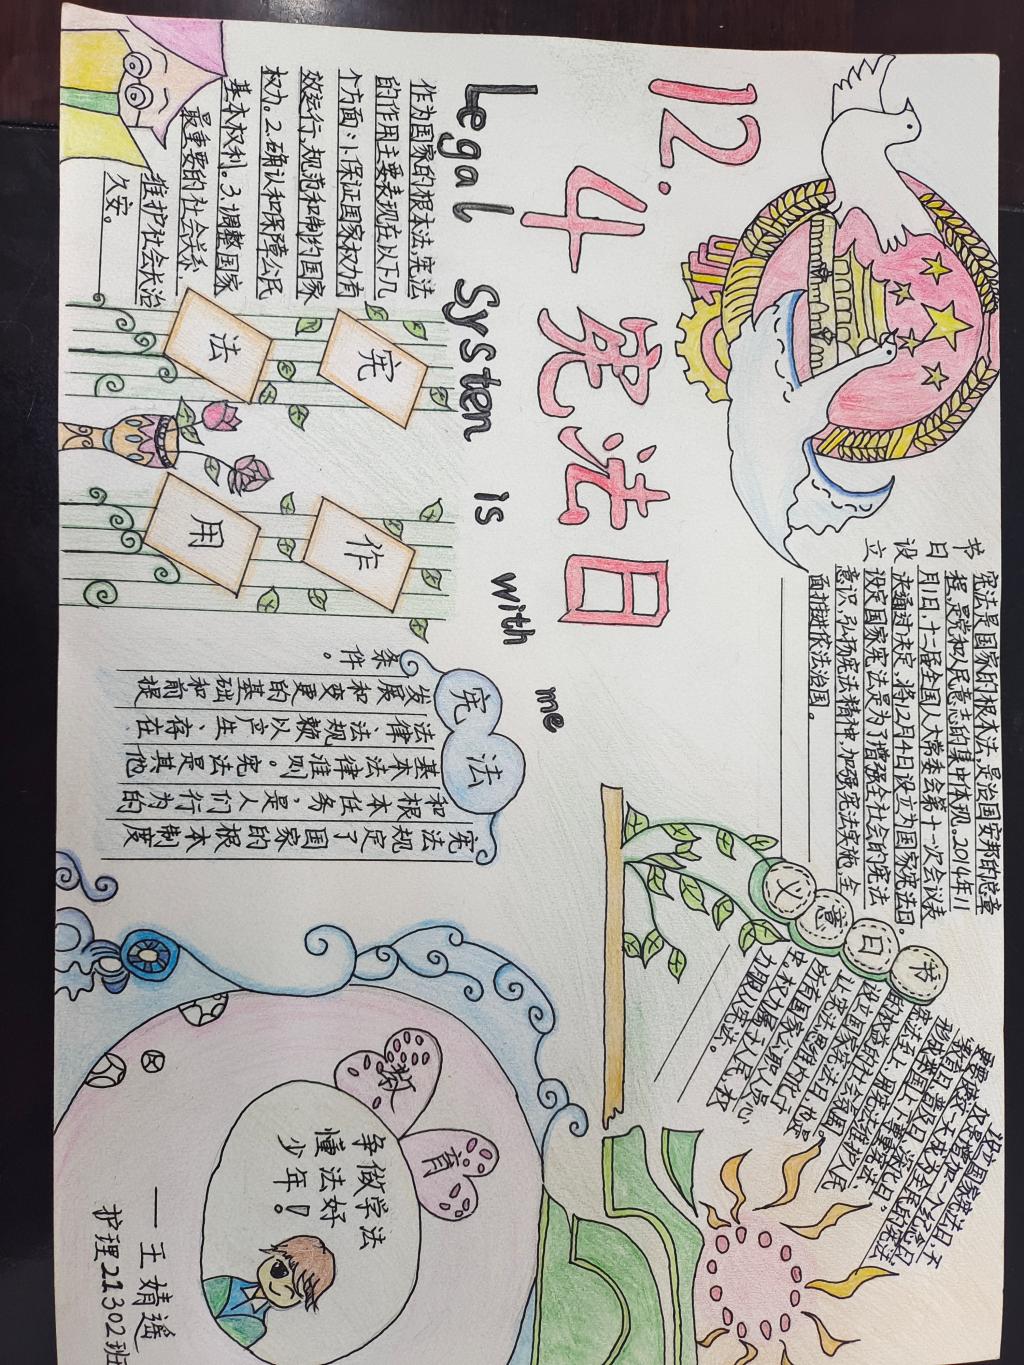 12.4宪法日
Legal Systen is with me
节日设立
宪法是国家的根本法,是治国安邦的总章
程,是党和人民意志的集中体现。2014年11
月1日,十二届全国人大常委会第十一次会议表
决通过决定,将12月4日设立为国家宪法日。
设定国家宪法是为了增强全社会的宪法
意识,弘扬宪法精神,加强宪法实施,全
面推进依法治国。
作为国家的根本法,宪法
的作用主要表现在以下几
个方面:1.保证国家权力有
效运行,规范和制约国家
权力。2.确认和保障公民
基本权利。3.调整国家
最重要的社会关系,
维护社会长治
久安。
宪法
作用
宪法
宪法规定了国家的根本制度
和根本任务,是人们行为的
基本法律准则。宪法是其他
法律法规赖以产生、存在、
发展和变更的基础和前提
条件。
节日意义
设立“国家宪法日”,不
仅是增加一个纪念日,
更要使这一天成为全民的宪法
“教育日、普及日、深化日”,
形成举国上下尊重宪法、
宪法至上、用宪法维护人民
权益的社会氛围。
设立国家宪法日,也是
让宪法思维内化于
所有国家公职人员心
中。权力属于人民,权
力服从宪法。
教育
争做学法
懂法好
少年!
——王婧遥
护理21302班